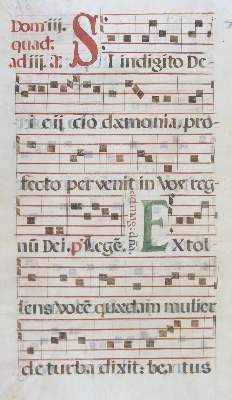 Domi iij.
quad:
ad iij. A. SI indigito De-
i eijcio dæmonia, pro-
fecto pervenit in vos reg-
nū Dei. ps Legē. EX tol
lens vocē quædam mulier
de turba dixit: beatus